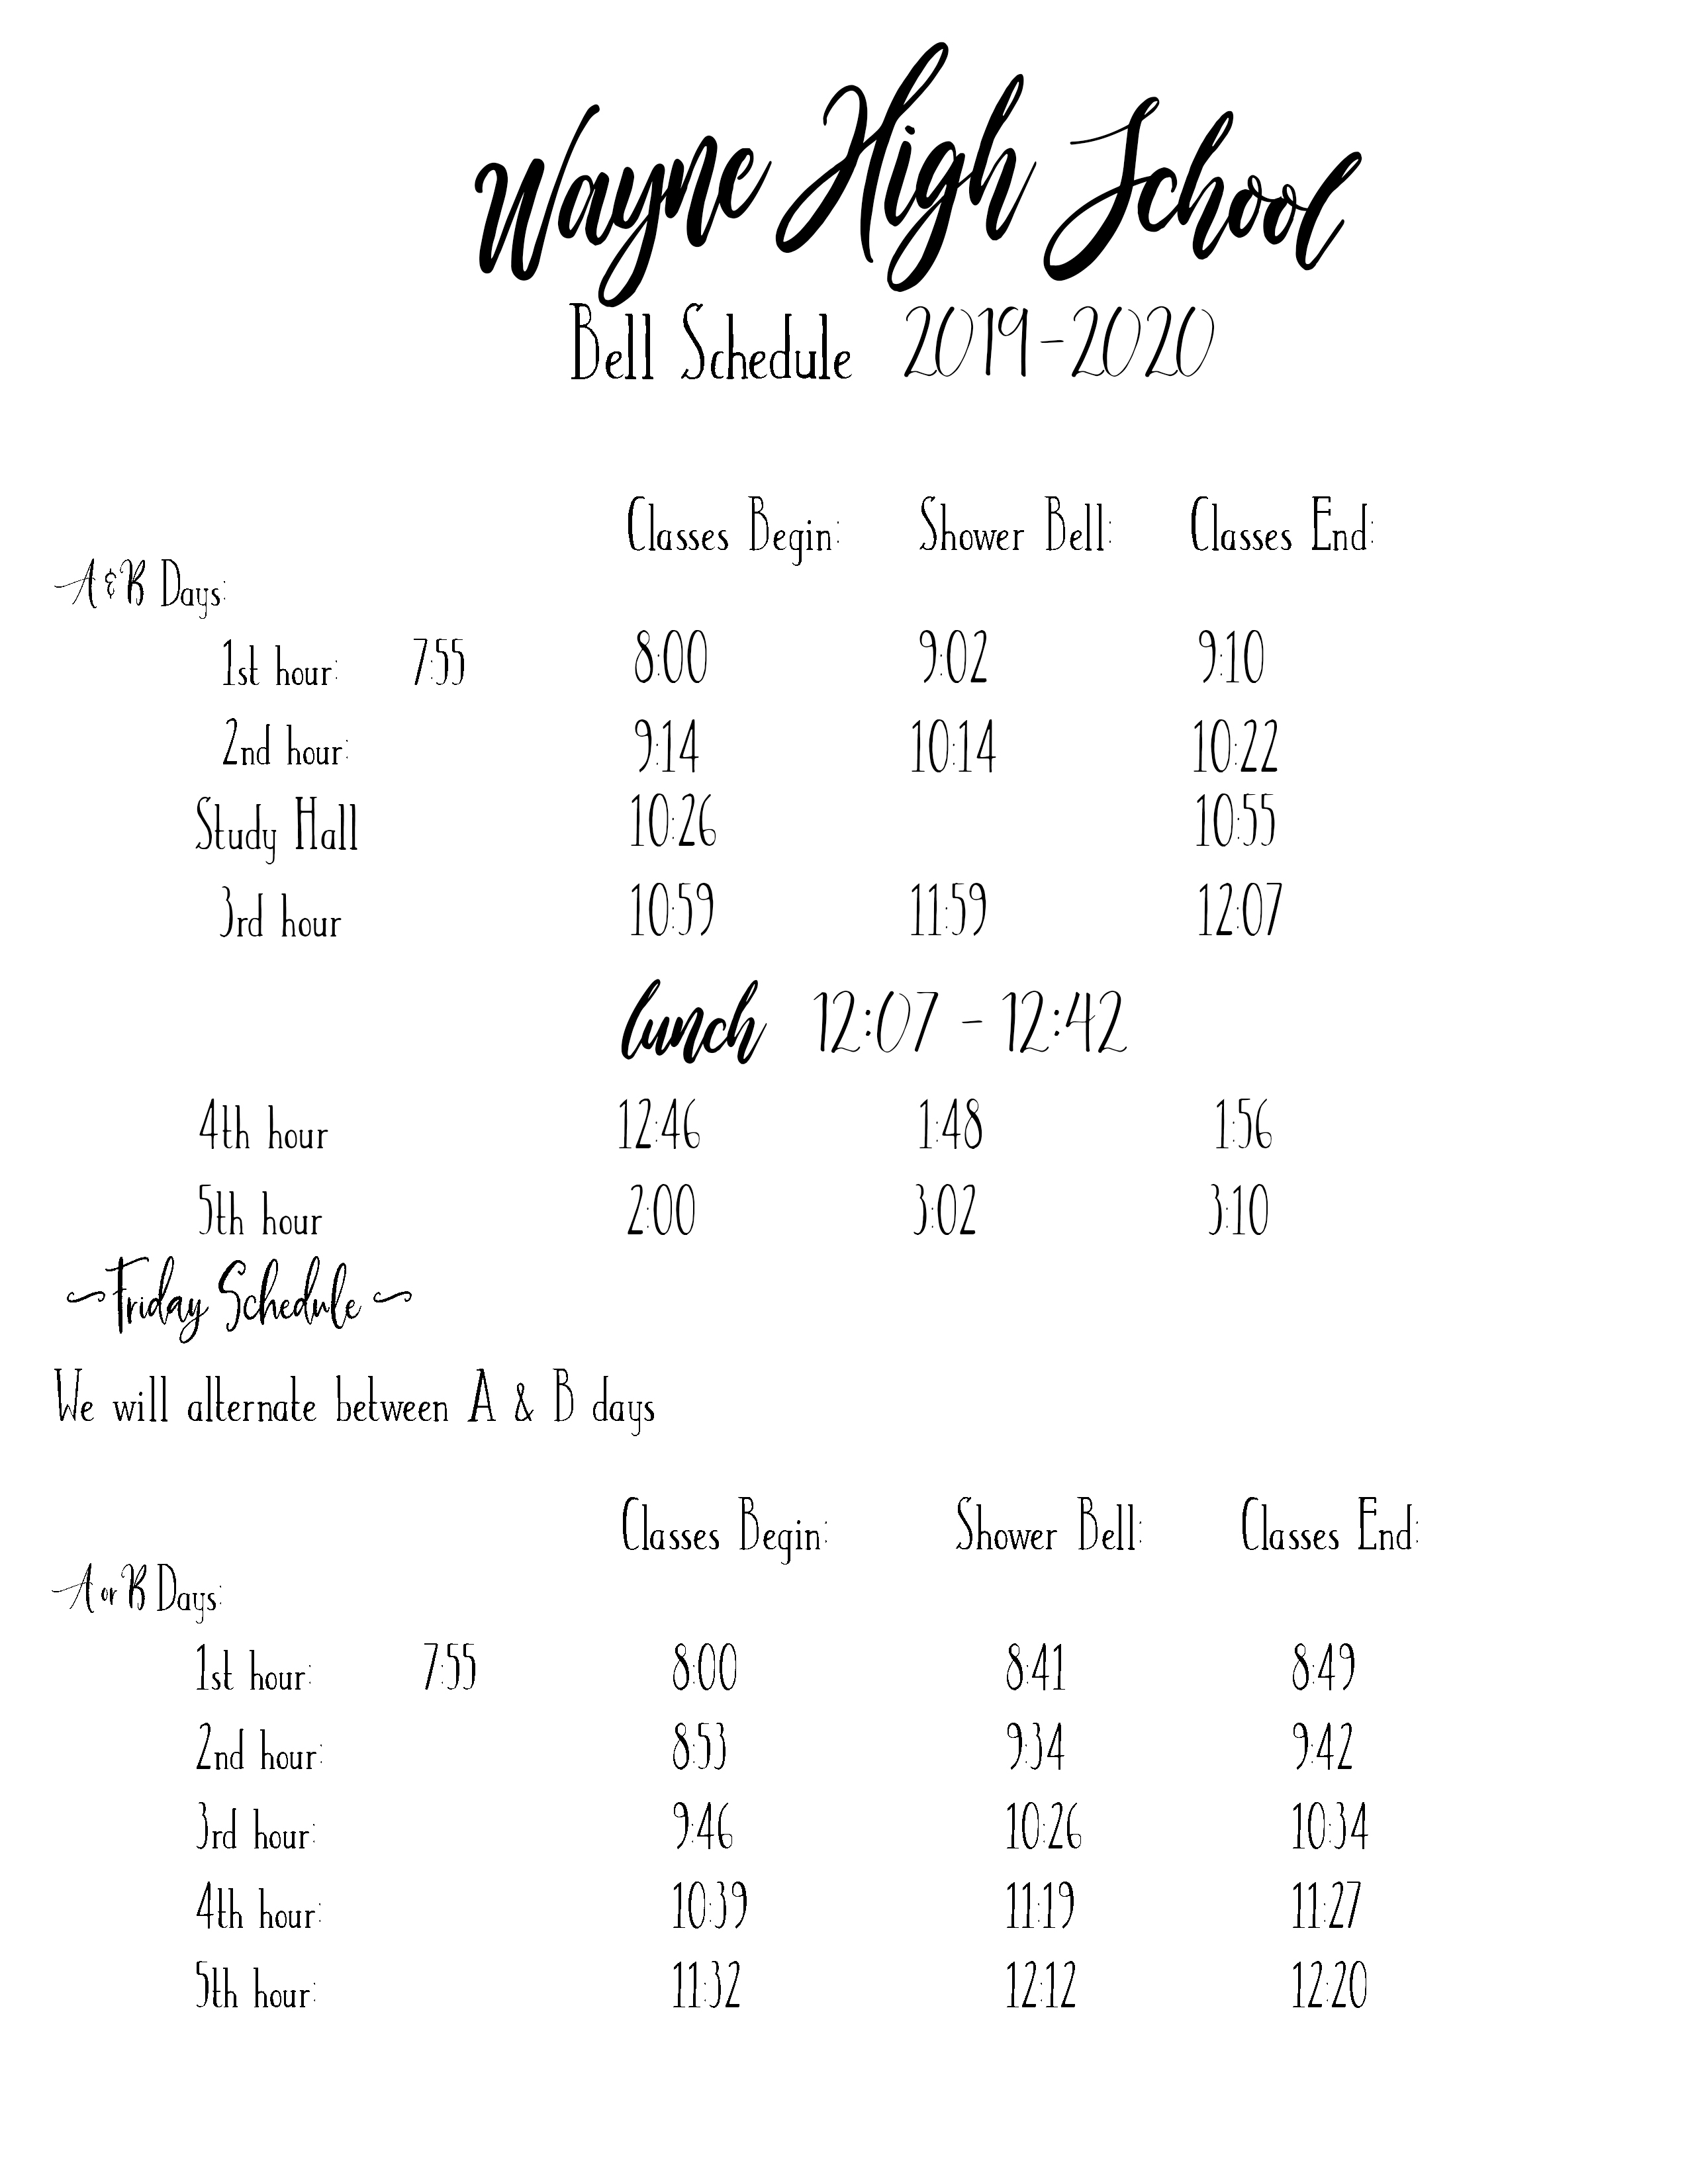 Wayne High School
Bell Schedule 2019-2020
Classes Begin: Shower Bell: Classes End:
A & B Days:
1st hour: 7:55 8:00 9:02 9:10
2nd hour: 9:14 10:14 10:22
Study Hall 10:26 10:55
3rd hour 10:59 11:59 12:07
lunch 12:07 - 12:42
4th hour 12:46 1:48 1:56
5th hour 2:00 3:02 3:10
~Friday Schedule~
We will alternate between A & B days
Classes Begin: Shower Bell: Classes End:
A or B Days:
1st hour: 7:55 8:00 8:41 8:49
2nd hour: 8:53 9:34 9:42
3rd hour: 9:46 10:26 10:34
4th hour: 10:39 11:19 11:27
5th hour: 11:32 12:12 12:20